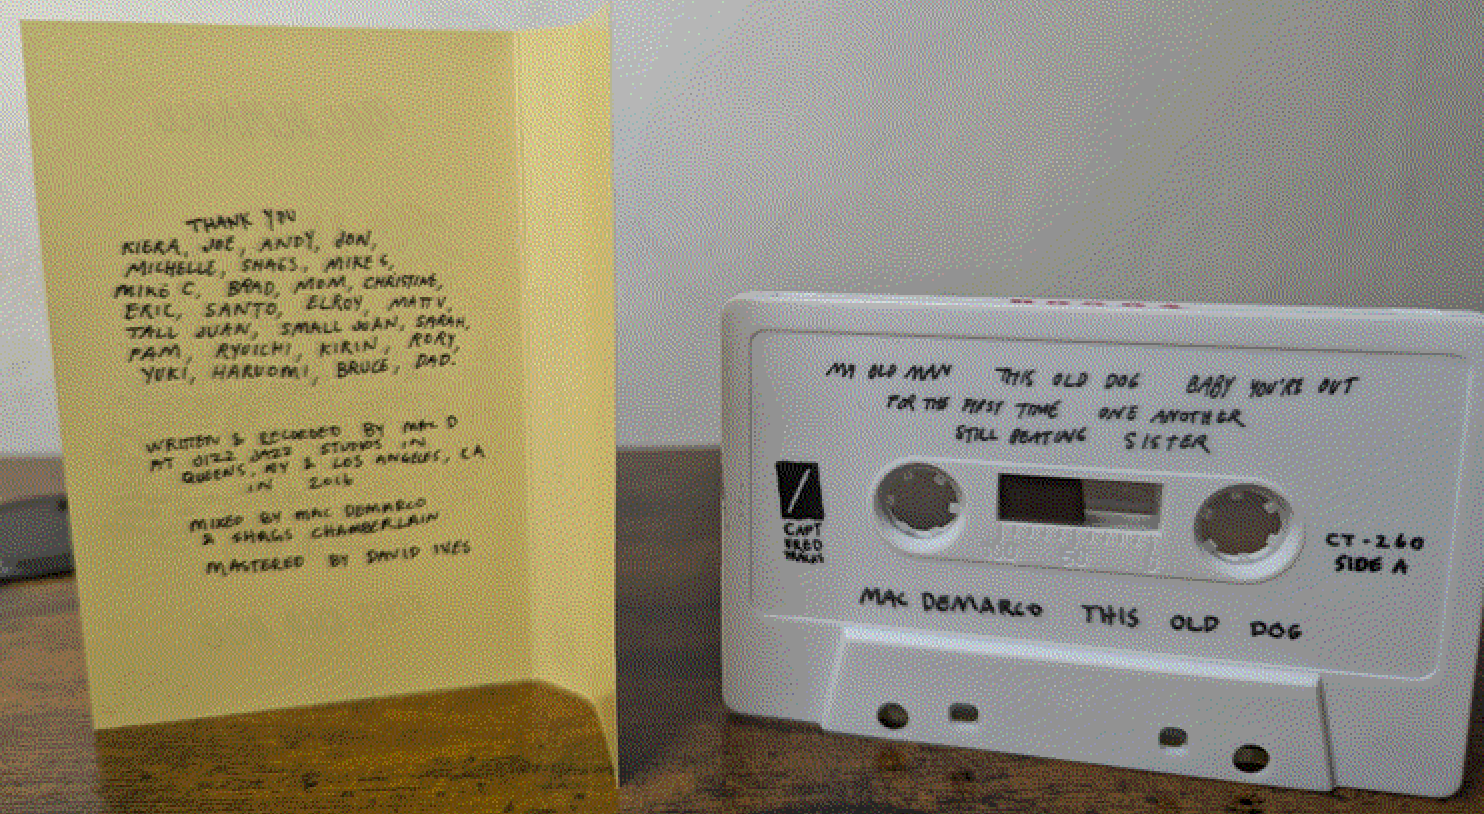 THANK YOU
KIERA, JOE, ANDY, JON,
MICHELLE, SHAGS, MIKE S,
MIKE C, BRAD, MOM, CHRISTINE,
ERIC, SANTO, ELROY, MATT V,
TALL JUAN, SMALL JUAN, SARAH,
PAM, RYUICHI, KIRIN, RORY,
YUKI, HARUOMI, BRUCE, DAD.
WRITTEN & RECORDED BY MAC D
AT JIZZ JAZZ STUDIOS IN
QUEENS, NY & LOS ANGELES, CA
IN 2016
MIXED BY MAC DEMARCO
& SHAGS CHAMBERLAIN
MASTERED BY DAVID IVES
MY OLD MAN THIS OLD DOG BABY YOU'RE OUT
FOR THE FIRST TIME ONE ANOTHER
STILL BEATING SISTER
CAPT
URED
TRACKS
CT-260
SIDE A
MAC DEMARCO THIS OLD DOG